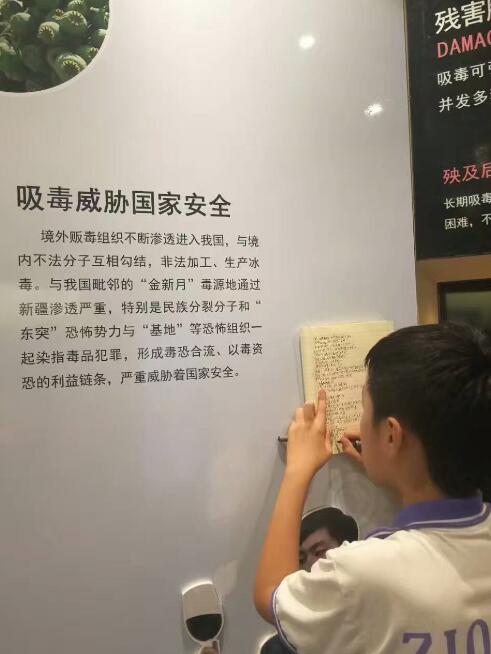 吸毒威胁国家安全
境外贩毒组织不断渗透进入我国，与境
内不法分子互相勾结，非法加工、生产冰
毒。与我国毗邻的“金新月”毒源地通过
新疆渗透严重，特别是民族分裂分子和“
东突”恐怖势力与“基地”等恐怖组织一
起染指毒品犯罪，形成毒恐合流、以毒资
恐的利益链条，严重威胁着国家安全。
残害
DAMA
吸毒可
并发多
殃及后
长期吸毒
困难，不
ZJO